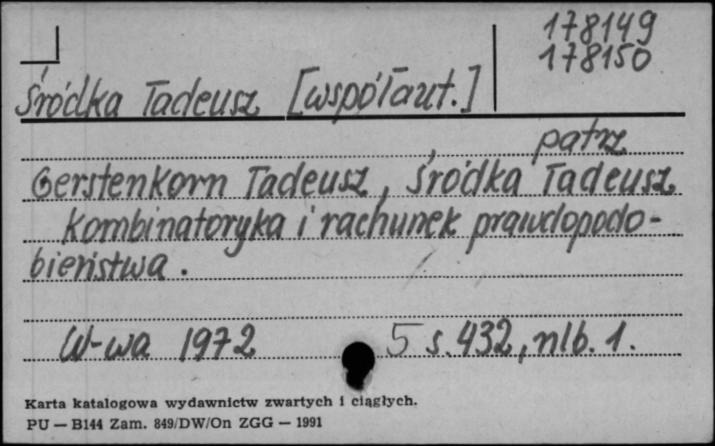 178149
178150
Śródka Tadeusz [współaut.]
patrz
Gerstenkorn Tadeusz, Śródka Tadeusz
Kombinatoryka i rachunek prawdopodo-
bieństwa.
W-wa 1972 5 s. 432, nlb. 1.
Karta katalogowa wydawnictw zwartych i ciągłych.
PU — B144 Zam. 849/DW/On ZGG — 1991